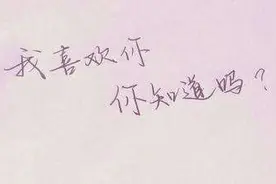 我喜欢你
你知道吗？